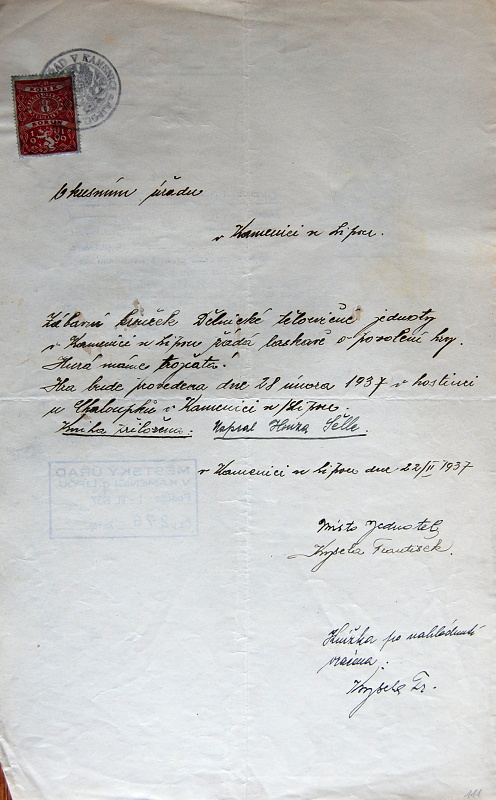 KOLEK
8
KORUN
1919
ÚŘAD V KAMENICI
Okresnímu úřadu
v Kamenici n Lipou.
Zábavní krouček Dělnické tělocvičné jednoty
v Kamenici n Lipou žádá laskavě o povolení hry.
Hurá máme trojčata!
Hra bude provedena dne 28 února 1937 v hostinci
u Chaloupků v Kamenici n/Lipou.
Kniha přiložena: Napsal Honza Selle.
v Kamenici n Lipou dne 22/II 1937
MĚSTSKÝ ÚŘAD
V KAMENICI n. LIPOU
1937
Místo Jednatel
Kysela František.
Knížka po nahlédnutí
vrácena:
Kysela Fr.
111